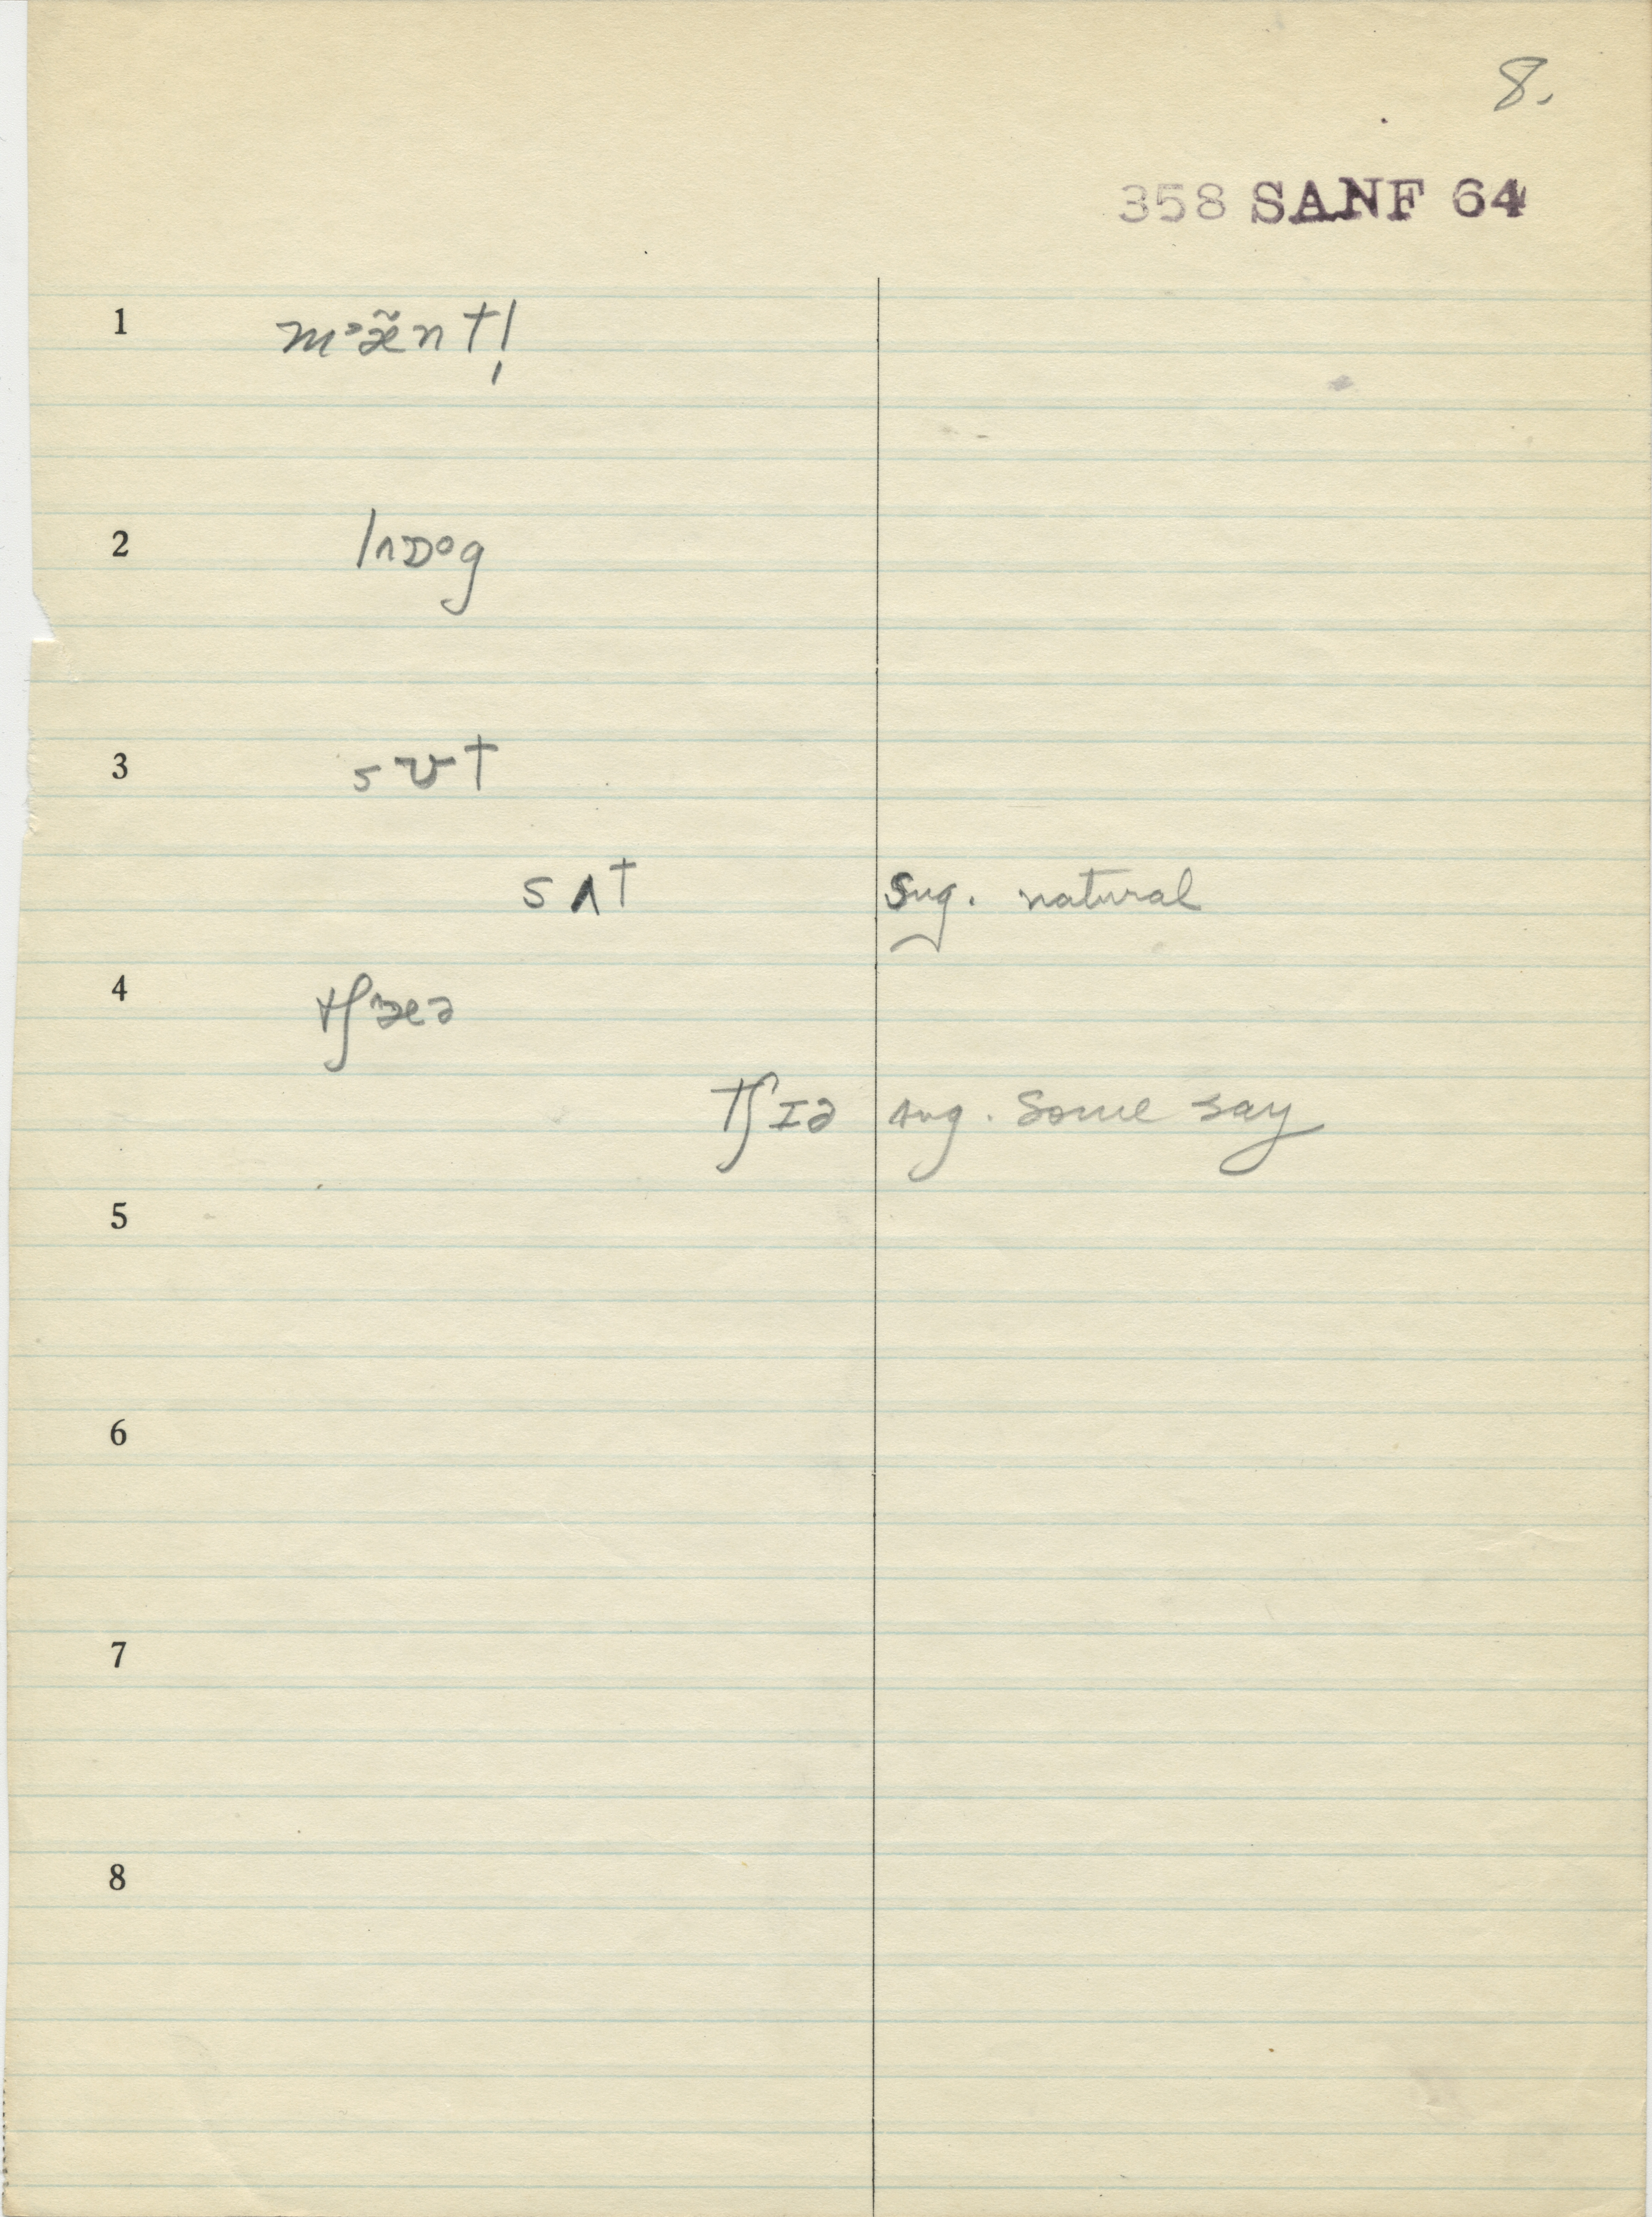 8.
358 SANF 64
1 mᵊæ̃ntl̩
2
3 sʊt
sʌt sug. natural
4
tʃɪə sug. some say
5
6
7
8